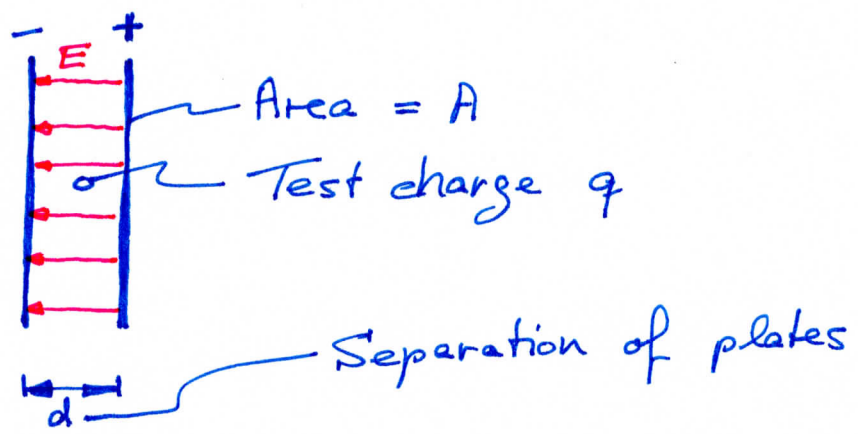 - +
E
Area = A
Test charge q
Separation of plates
d